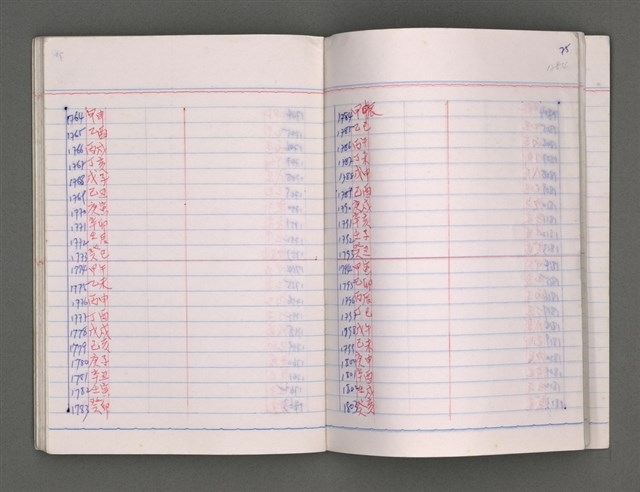 1764 甲申
1765 乙酉
1766 丙戌
1767 丁亥
1768 戊子
1769 己丑
1770 庚寅
1771 辛卯
1772 壬辰
1773 癸巳
1774 甲午
1775 乙未
1776 丙申
1777 丁酉
1778 戊戌
1779 己亥
1780 庚子
1781 辛丑
1782 壬寅
1783 癸卯
75
1784 甲辰
1785 乙巳
1786 丙午
1787 丁未
1788 戊申
1789 己酉
1790 庚戌
1791 辛亥
1792 壬子
1793
1794 甲寅
1795 乙卯
1796 丙辰
1797 丁巳
1798 戊午
1799 己未
1800 庚申
1801 辛酉
1802 壬戌
1803 癸亥